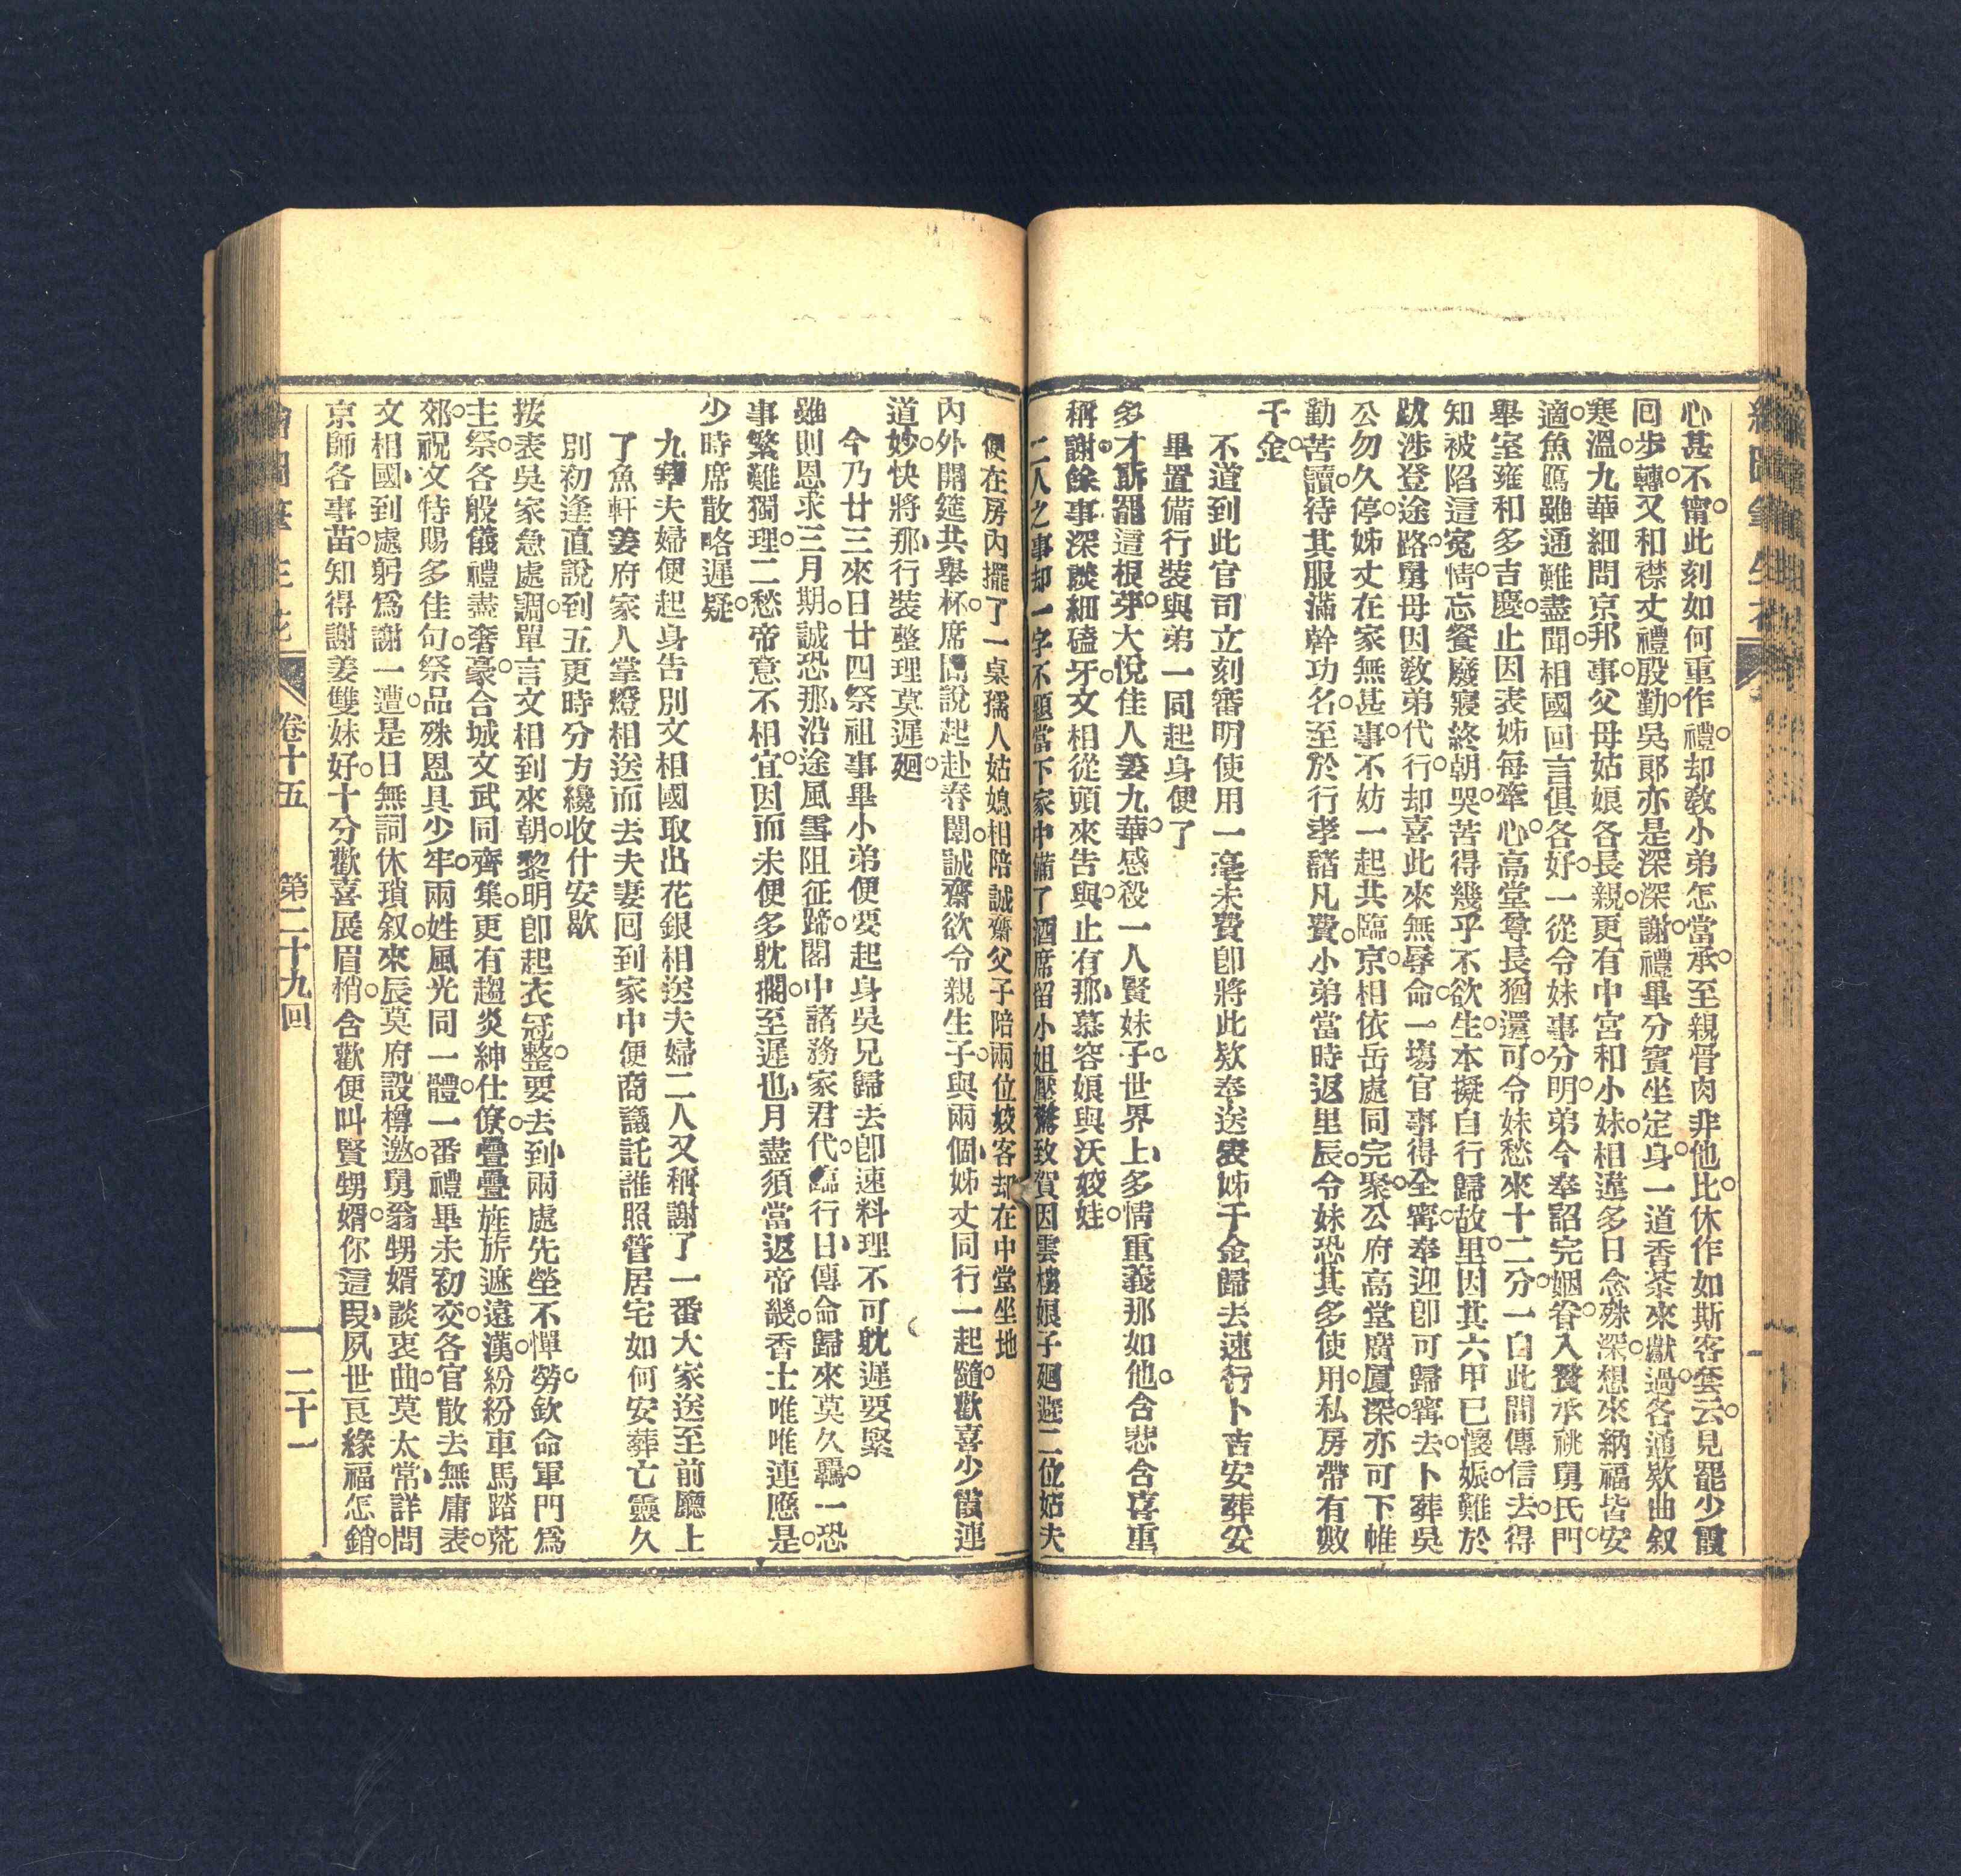 繪圖筆生花
心甚不甯此刻如何重作禮却敎小弟怎當承至親骨肉非他比休作如斯客套云見罷少霞
囘步轉又和襟丈禮殷勤吳郞亦是深深謝禮畢分賓坐定身一道香茶來獻過各通欵曲叙
寒溫九華細問京邦事父母姑娘各長親更有中宮和小妹相違多日念殊深想來納福皆安
適魚鴈雖通難盡聞相國回言俱各好一從令妹事分明弟今奉詔完姻眷入贅承祧舅氏門
舉室雍和多吉慶止因表姊每牽心高堂尊長猶還可令妹愁來十二分一自此間傳信去得
知被陷這寃情忘餐廢寢終朝哭苦得幾乎不欲生本擬自行歸故里因其六甲已懷娠難於
跋涉登途路舅母因敎弟代行却喜此來無辱命一塲官事得全甯奉迎卽可歸甯去卜葬吳
公勿久停姊丈在家無甚事不妨一起共臨京相依岳處同完聚公府高堂廣厦深亦可下帷
勤苦讀待其服滿幹功名至於行李諸凡費小弟當時返里辰令妹恐其多使用私房帶有數
千金
不道到此官司立刻審明使用一毫未費卽將此欵奉送表姊千金歸去速行卜吉安葬安
畢置備行裝與弟一同起身便了
多才訴罷這根芽大悅佳人姜九華感殺一人賢妹子世界上多情重義那如他含悲含喜重
稱謝餘事深談細磕牙文相從頭來告與止有那慕容娘與沃姣娃
二人之事却一字不題當下家中備了酒席留小姐壓驚致賀因雲樓娘子廻避二位姑夫
便在房內擺了一桌孺人姑媳相陪誠齋父子陪兩位姣客却在中堂坐地
內外開筵共舉杯席間說起赴春闈誠齋欲令親生子與兩個姊丈同行一起隨歡喜少霞連
道妙快將那行裝整理莫遲廻
今乃廿三來日廿四祭祖事畢小弟便要起身吳兄歸去卽速料理不可躭遲要緊
雖則恩求三月期誠恐那沿途風雪阻征蹄閣中諸務家君代臨行日傳命歸來莫久羈一恐
事繁難獨理二愁帝意不相宜因而未便多躭擱至遲也月盡須當返帝畿香士唯唯連應是
少時席散略遲疑
九華夫婦便起身告別文相國取出花銀相送夫婦二人又稱謝了一番大家送至前廳上
了魚軒姜府家人掌燈相送而去夫妻回到家中便商議託誰照管居宅如何安葬亡靈久
別初逢直說到五更時分方纔收什安歇
按表吳家急處調單言文相到來朝黎明卽起衣冠整要去到兩處先塋不憚勞欽命軍門爲
主祭各般儀禮盡奢豪合城文武同齊集更有趨炎紳仕僚疊疊旌旂遮遠漢紛紛車馬踏荒
郊祝文特賜多佳句祭品殊恩具少牢兩姓風光同一體一番禮畢未初交各官散去無庸表
文相國到處躬爲謝一遭是日無詞休瑣叙來辰莫府設樽邀舅翁甥婿談衷曲莫太常詳問
京師各事苗知得謝姜雙妹好十分歡喜展眉梢含歡便叫賢甥婿你這段夙世良緣福怎銷
繪圖筆生花 卷十五 第二十九回 二十一